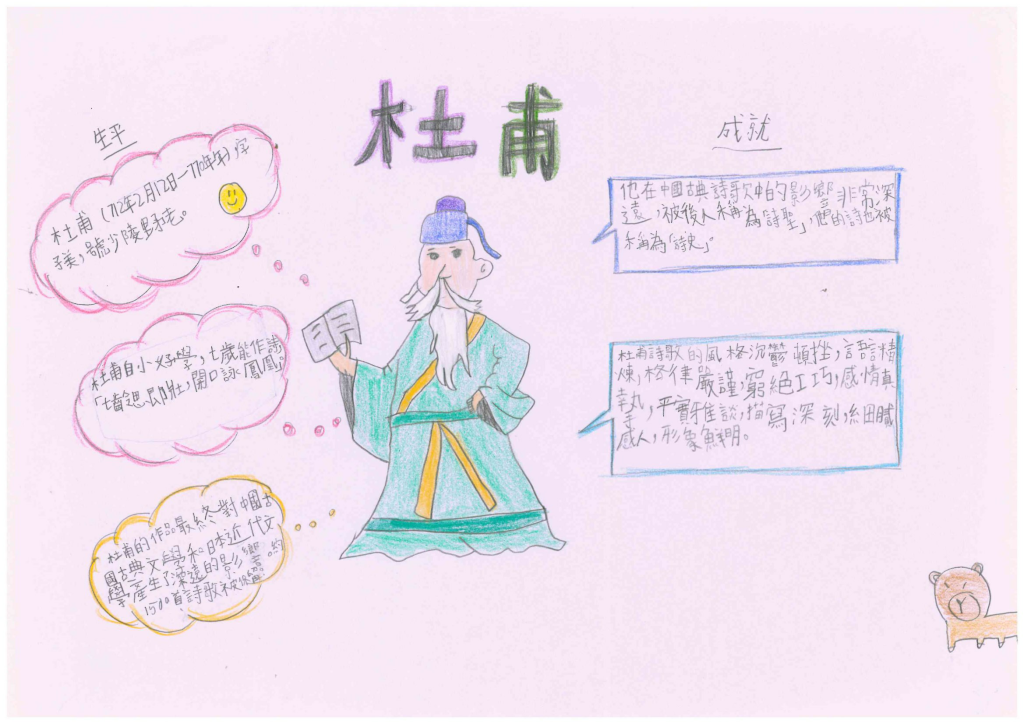 杜甫
生平
杜甫（712年2月12日一770年年）字
子美，號少陵野老。
杜甫自小好學，七歲能作詩
「七齡思即壯，開口詠鳳凰。
杜甫的作品最終對中國古
國古典文學和日本近代文
學產生了深遠的影響。約
1500首詩歌被保留。
成就
他在中國古典詩歌中的影響非常深
遠，被後人稱為詩聖」，他的詩也被
稱為「詩史」。
杜甫詩歌的風格沉鬱頓挫，語言精
煉，格律嚴謹，窮絕工巧，感情真
摯，平實雅談，描寫深刻，細膩
感人，形象鮮明。